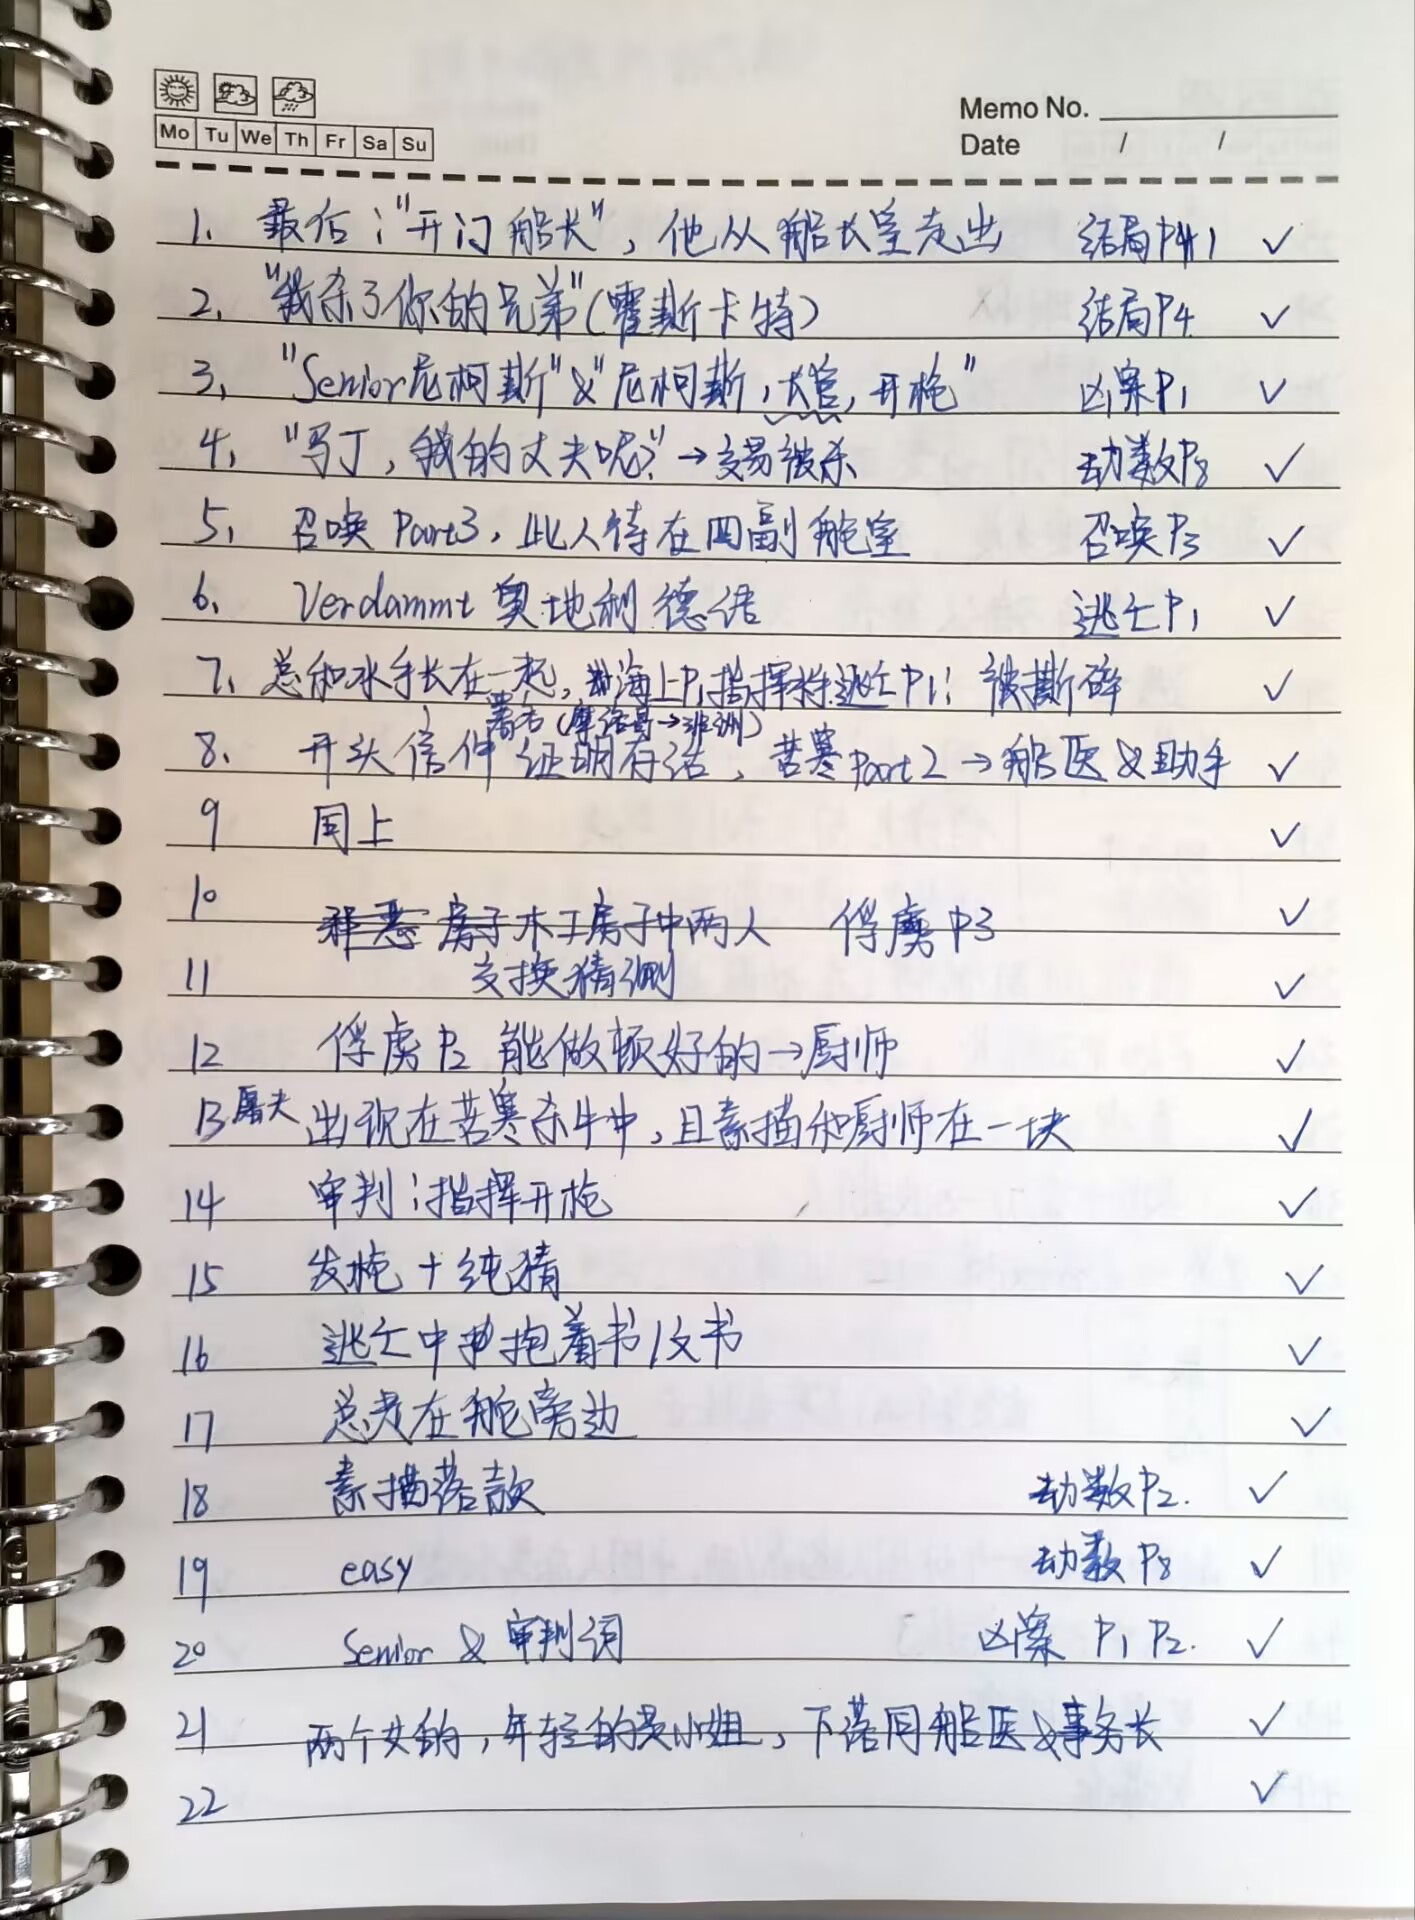 Mo Tu We Th Fr Sa Su
Memo No.
Date / /
1. 最后:"开门船长", 他从船长室走出 结局P1 ✓
2. "我杀了你的兄弟"(霍斯卡特) 结局P4 ✓
3. "Senior尼柯斯"&"尼柯斯,大管,开枪" 凶案P1 ✓
4. "马丁,我的丈夫呢?"→交易被杀 劫数P8 ✓
5. 召唤Part3, 此人待在四副舱室 召唤P3 ✓
6. Verdammt 奥地利 德语 逃亡P1 ✓
7. 总和水手长在一起, 海上P1指挥 逃亡P1: 被撕碎 ✓
署名(摩洛哥→非洲)
8. 开头信件 证明存活, 苦寒Part2→船医&助手 ✓
9 同上 ✓
10 木工房子中两人 俘虏P3 ✓
11 交换猜测 ✓
12 俘虏P2 能做顿好的→厨师 ✓
13 屠夫 出现在苦寒杀牛中,且素描和厨师在一块 ✓
14 审判:指挥开枪 ✓
15 发枪+纯猜 ✓
16 逃亡中抱着书/文书 ✓
17 总是在舵旁边 ✓
18 素描落款 劫数P2. ✓
19 easy 劫数P8 ✓
20 Senior & 审判词 凶案 P1 P2. ✓
21 两个女的,年轻的是小姐,下落同船医&事务长 ✓
22 ✓